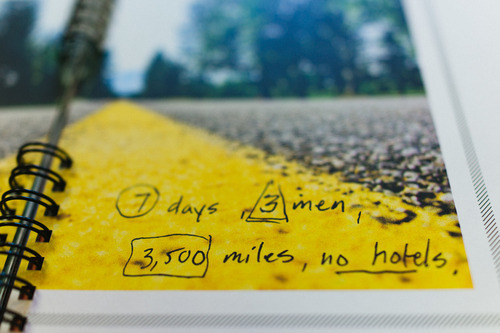 7 days, 3 men,
3,500 miles, no hotels.